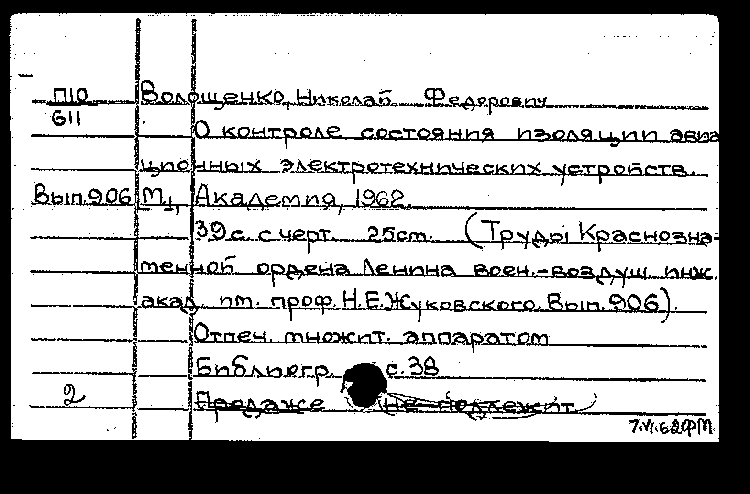 П10 Волощенко, Николай Федорович
611
О контроле состояния изоляции авиа
ционных электротехнических устройств.
Вып.906 М., Академия, 1962.
39 с. с черт. 25см. (Труды Краснозна-
менной ордена Ленина воен.-воздуш. инж.
акад. им. проф. Н.Е.Жуковского. Вып.906).
Отпеч. множит. аппаратом
Библиогр. с.38
2 Продаже не подлежит
7.VI.62ФМ